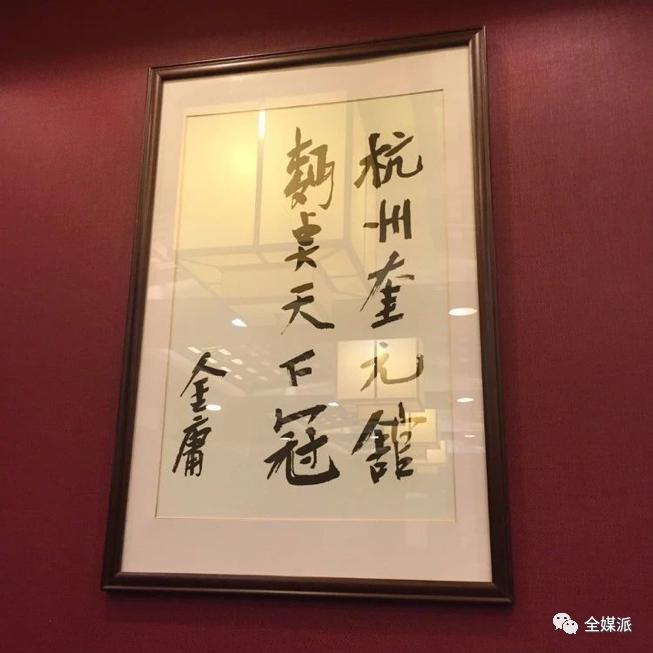 杭州奎元舘
麪奌天下冠
金庸
全媒派